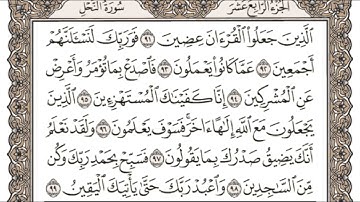 الجزء الرابع عشر
سورة النحل
الَّذِينَ جَعَلُوا الْقُرْءَانَ عِضِينَ ٩١ فَوَرَبِّكَ لَنَسْـَٔلَنَّهُمْ
أَجْمَعِينَ ٩٢ عَمَّا كَانُوا يَعْمَلُونَ ٩٣ فَاصْدَعْ بِمَا تُؤْمَرُ وَأَعْرِضْ
عَنِ الْمُشْرِكِينَ ٩٤ إِنَّا كَفَيْنَاكَ الْمُسْتَهْزِءِينَ ٩٥ الَّذِينَ
يَجْعَلُونَ مَعَ اللَّهِ إِلَٰهًا ءَاخَرَ فَسَوْفَ يَعْلَمُونَ ٩٦ وَلَقَدْ نَعْلَمُ
أَنَّكَ يَضِيقُ صَدْرُكَ بِمَا يَقُولُونَ ٩٧ فَسَبِّحْ بِحَمْدِ رَبِّكَ وَكُن
مِّنَ السَّاجِدِينَ ٩٨ وَاعْبُدْ رَبَّكَ حَتَّىٰ يَأْتِيَكَ الْيَقِينُ ٩٩